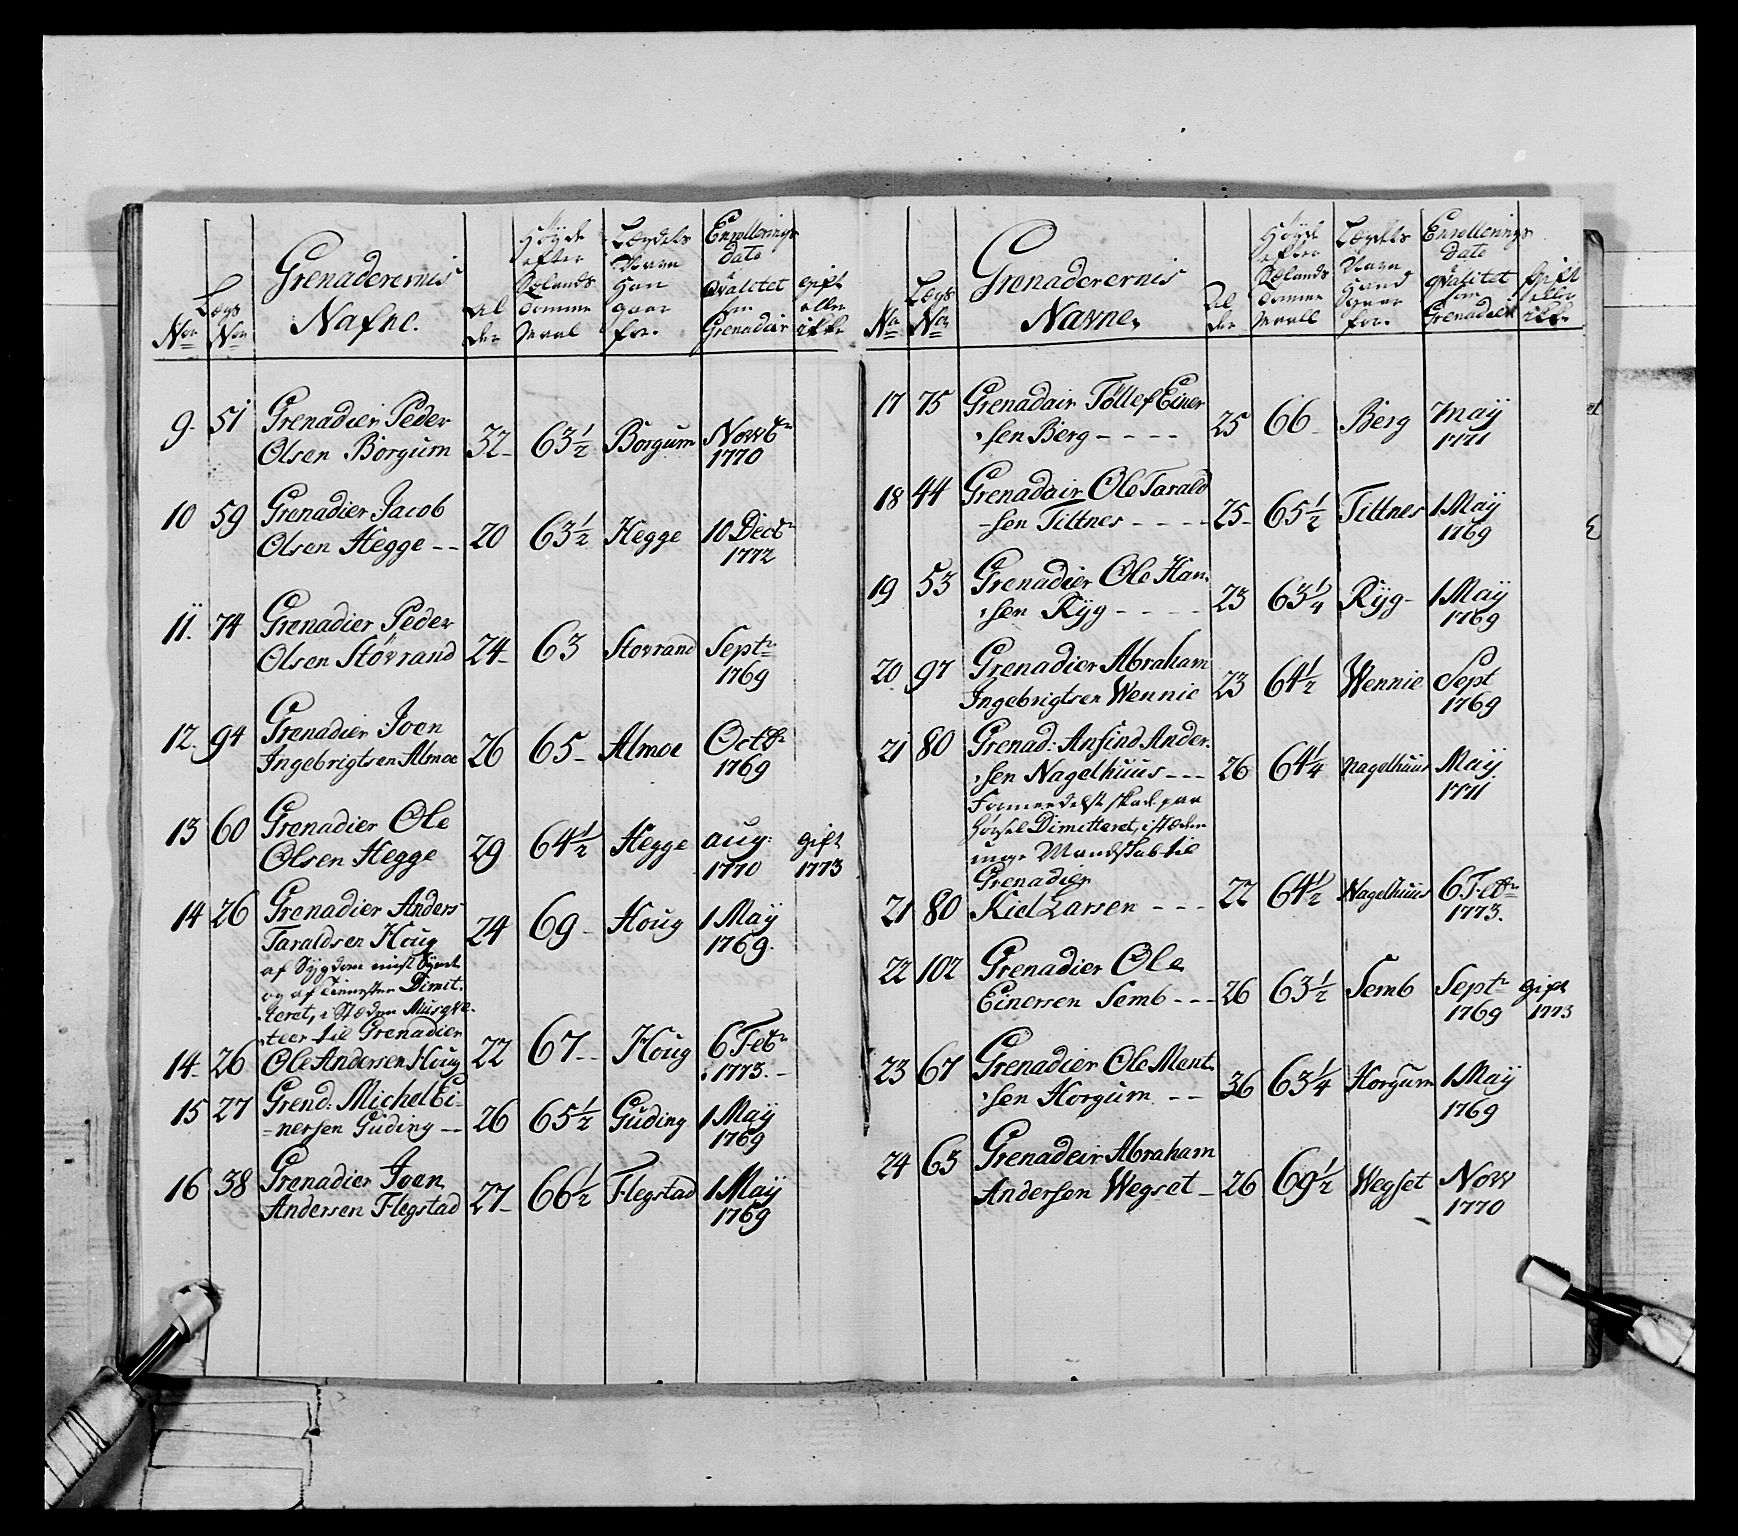 No
Lægs No
Grenaderernis
Nafne.
Al
der
Høyde
efter
Sælands
Tomme
Maal
Lægdets
Navn
Han
gaar
for.
Enrollerings
dato
i
Qvalitet
som
Grenadir
Gift
eller
ikke
9. 51 Grenadier Peder
Olsen Borgum 32 63½ Borgum Novbr
1770
10 59 Grenadier Jacob
Olsen Hegge -- 20 63½ Hegge 10 Decbr
1772
11. 74 Grenadier Peder
Olsen Støvrand 24 63 Stovrand Septr
1769
12. 94 Grenadier Joen
Ingebrigtsen Almoe 26 65 Almoe Octbr
1769
13 60 Grenadier Ole
Olsen Hegge 29 64½ Hegge aug: Gift
1770 1773
14 26 Grenadier Anders
Taraldsen Houg 24 69 Houg 1 Maÿ
1769.
af Sÿgdom mist Sÿnet
og af Tienesten Dimit-
teret, i Stæden Musqve-
teer til Grenadier
14 26 Ole Andersen Houg 22 67 Houg 6 Febr
1773.
15 27 Grend: Michel Ei-
nersen Guding -- 26 65½ Guding 1 Maÿ
1769
16 38 Grenadier Joen
Andersen Flegstad 27 66½ Flegstad 1 Maÿ
1769
No
Lægs No
Grenaderernis
Navne.
Al
der
Høyde
efter
Sælands
Tomme
Maall
Lægdets
Navn
Hand
gaar
for.
Enrollerings
dato
i
Qvalitet
som
Grenadeir
Gift
eller
ikke
17 75 Grenadair Tollef Einer
sen Berg ---- 25 66 Berg Maÿ
1771
18 44 Grenadair Ole Tarald
-sen Tittnes ---- 25 65½ Tittnes 1 Maÿ
1769
19 53 Grenadier Ole Han-
sen Rÿg ---- 23 63¼ Rÿg 1 Maÿ
1769
20 97 Grenadier Abraham
Ingebrigtsen Wennie 23 64½ Wennie Sept
1769
21 80 Grenad: Ansind Ander-
sen Nagelhuus --- 26 64¼ Nagelhuus Maÿ
1771
Formedelst skade paa
Hørsel Dimitteret, i stæden
unge Mandskab til
Grenadier
21 80 Kiel Larsen --- 22 64½ Nagelhuus 6 Febr
1773.
22 102 Grenadier Ole
Einersen Semb --- 26 63½ Semb Septr Gift
1769 1773
23 67 Grenadier Ole Mont-
sen Horgum -- 36 63¼ Horgum 1 Maÿ
1769
24 63 Grenadeir Abraham
Andersen Wegset 26 69½ Wegset Nov
1770